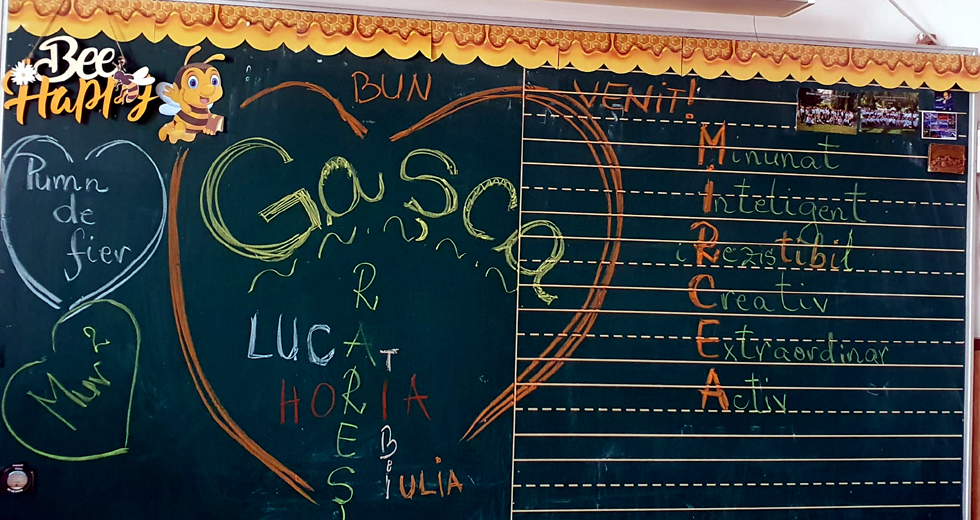 Bee
Happy
BUN VENIT!
Gasca
Pumn
de
fier
RAREȘ
LUCA
HORIA
TIBI
IULIA
Minunat
Inteligent
iRezistibil
Creativ
Extraordinar
Activ